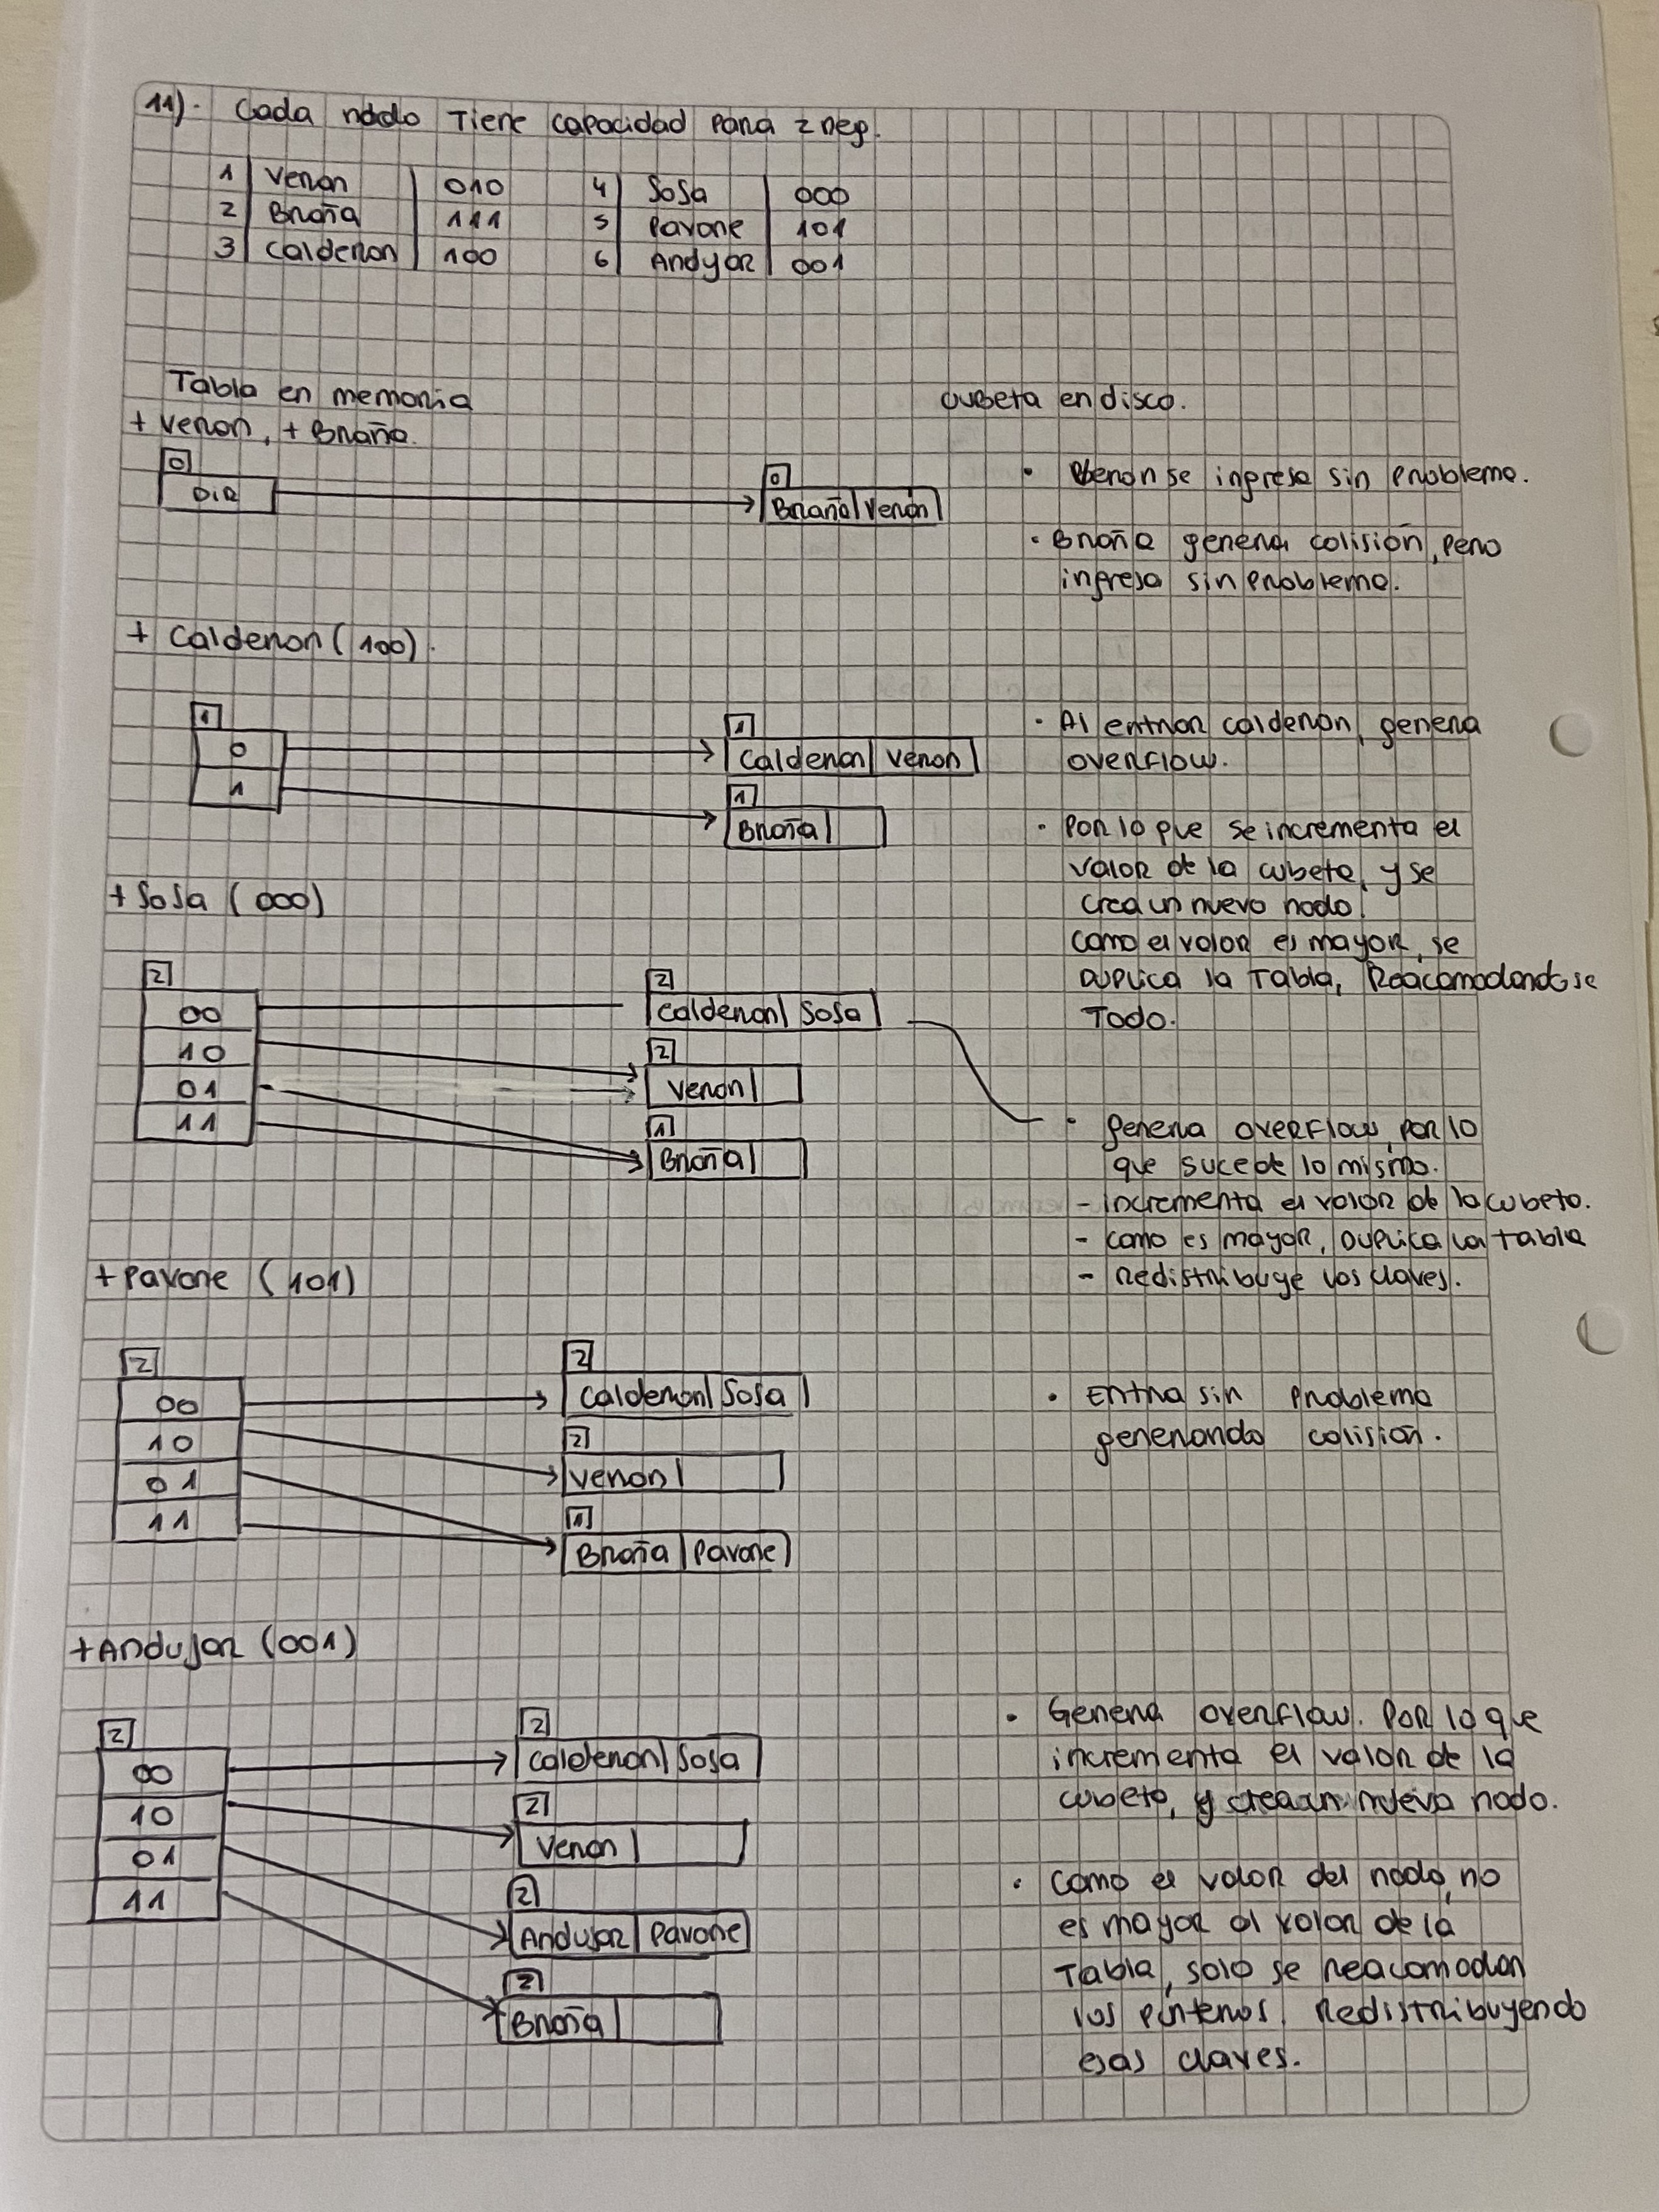 11). Cada nodo Tiene capacidad para 2 reg.
1 Veron 010 4 Sosa 000
2 Braña 111 5 Pavone 101
3 Calderon 100 6 Andyar 001
Tabla en memoria cubeta en disco.
+ Veron, + Braña.
0
DIR
0
Braña Veron
• Veron se ingresa sin problema.
• Braña genera colisión, pero
ingresa sin problema.
+ Calderon (100).
1
0
1
1
Calderon Veron
1
Braña
• Al entrar calderon, genera
overflow.
• Por lo que se incrementa el
valor de la cubeta, y se
crea un nuevo nodo.
como el valor es mayor, se
duplica la Tabla, Reacomodandose
Todo.
+ Sosa (000)
2
00
10
01
11
2
Calderon Sosa
2
Veron
1
Braña
• genera overflow, por lo
que sucede lo mismo.
- incrementa el valor de la cubeta.
- como es mayor, duplica la tabla
- Redistribuye las claves.
+ Pavone (101)
2
00
10
01
11
2
Calderon Sosa
2
Veron
1
Braña Pavone
• Entra sin problema
generando colisión.
+ Andujar (001)
2
00
10
01
11
2
Calderon Sosa
2
Veron
2
Andujar Pavone
2
Braña
• Genera overflow. Por lo que
incrementa el valor de la
cubeta, y crea un nuevo nodo.
• como el valor del nodo, no
es mayor al valor de la
Tabla, solo se reacomodan
los punteros. Redistribuyendo
esas claves.